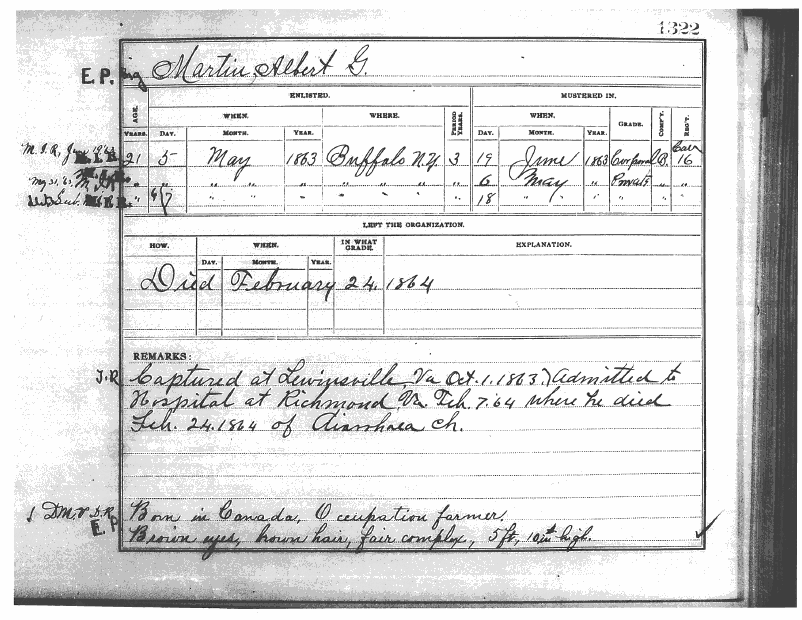 1322
E.P. Martin, Albert G.
ENLISTED. MUSTERED IN.
AGE. WHEN. WHERE. PERIOD YEARS. WHEN. GRADE. COMP'Y. REG'T.
YEARS. DAY. MONTH. YEAR. DAY. MONTH. YEAR.
Cav
M.I.R, June 1863 21 5 May 1863 Buffalo N.Y. 3 19 June 1863 Corporal B. 16
" " " " " " " 6 May " Private " "
" " " " " " 18 " " " " "
LEFT THE ORGANIZATION.
HOW. WHEN. IN WHAT GRADE. EXPLANATION.
DAY. MONTH. YEAR.
Died February 24. 1864
REMARKS:
J.R. Captured at Lewinsville, Va Oct. 1. 1863. Admitted to
Hospital at Richmond, Va. Feb. 7. 64 where he died
Feb. 24. 1864 of Diarrhaea Ch.
Born in Canada, Occupation farmer.
E.P. Brown eyes, brown hair, fair complex., 5 ft, 10 in high.